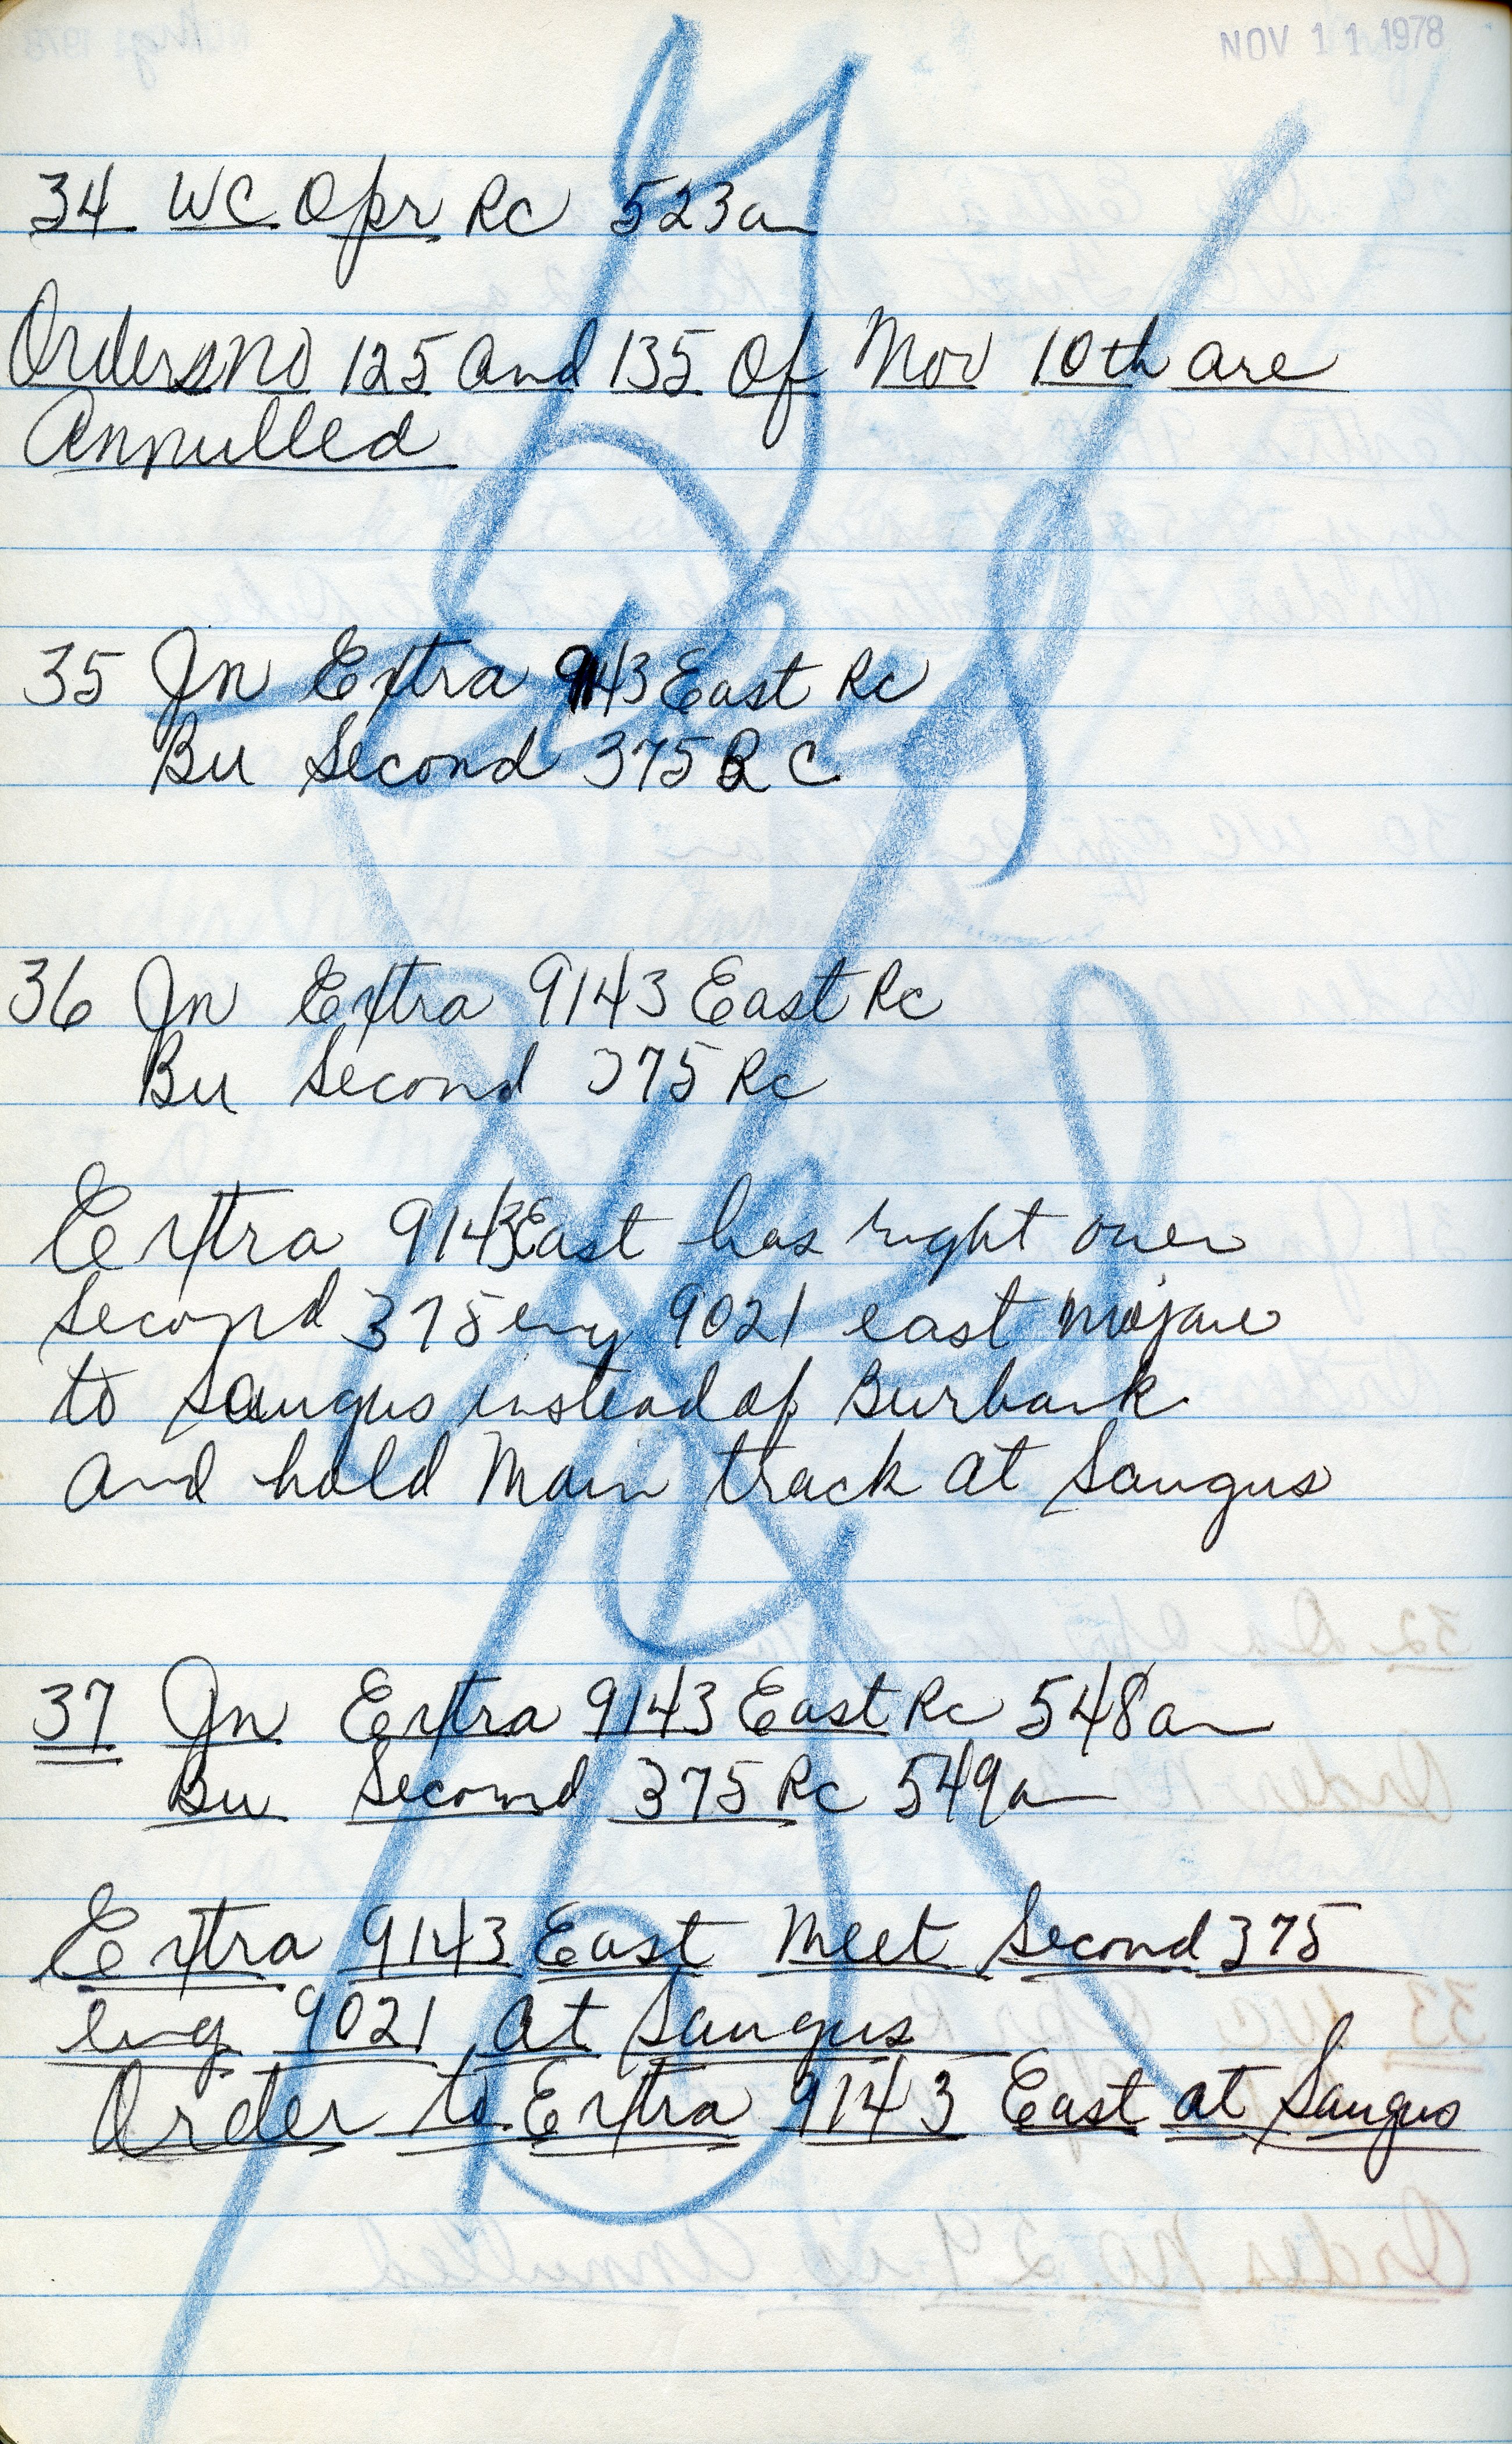 NOV 11 1978
34 WC Opr Rc 523a
Orders No 125 and 135 Of Nov 10th are
Annulled
35 Jn Extra 9143 East Rc
Bu Second 375 RC
36 Jn Extra 9143 East Rc
Bu Second 375 Rc
Extra 9143 East has right over
Second 375 eng 9021 east Mojave
to Saugus instead of Burbank
and hold Main track at Saugus
37 Jn Extra 9143 East Rc 548a
Bu Second 375 Rc 549a
Extra 9143 East Meet Second 375
eng 9021 at Saugus
Order to Extra 9143 East at Saugus